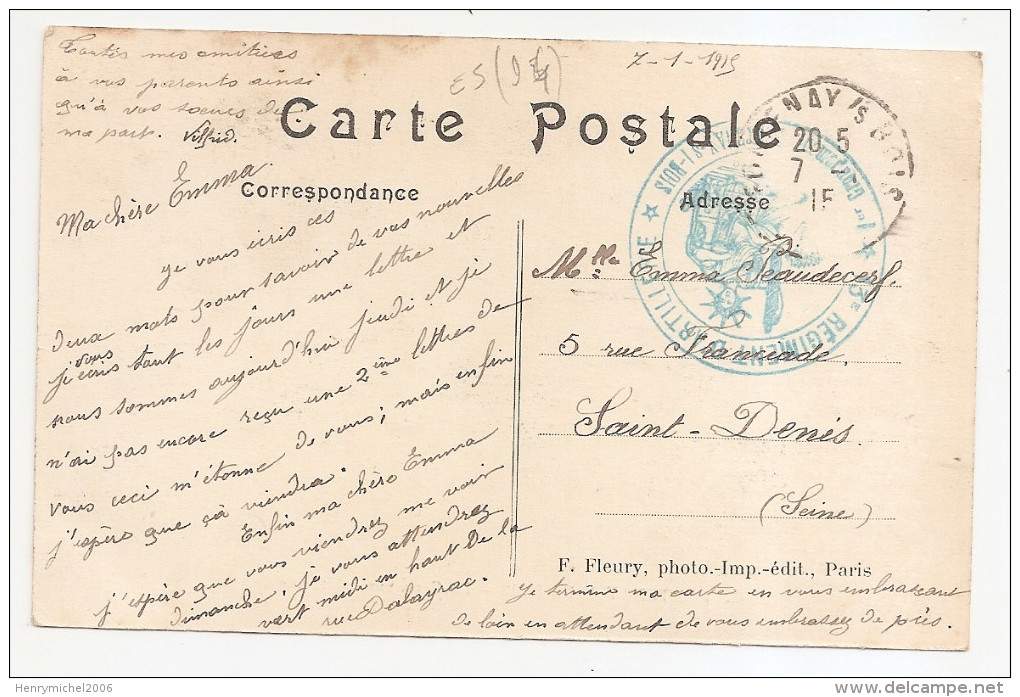 Toutes mes amitiées
à vos parents ainsi
qu'à vos soeurs de
ma part. Vilfrid.
ES (94)
7-1-1915
Carte Postale
Correspondance
Adresse
ENAY /s BOIS
20 5
7
15
RÉGIMENT D'ARTILLERIE
Ma chère Emma
je vous écris ces
deux mots pour savoir de vos nouvelles
j'écris tout les jours une lettre et
vous
nous sommes aujourd'hui jeudi et je
n'ai pas encore reçu une 2ème lettres de
vous ceci m'étonne de vous; mais enfin
j'espère que çà viendra.
Enfin ma chère Emma
j'espère que vous viendrez me voir
dimanche, je vous attendrez
vert midi en haut De la
rue Dalayrac.
je termine ma carte en vous embrassant
de loin en attendant de vous embrassez de près.
Mlle Emma Beaudecerf.
5 rue Franciade,
Saint-Denis.
(Seine)
F. Fleury, photo.-Imp.-édit., Paris
Henrymichel2006
delcampe.net